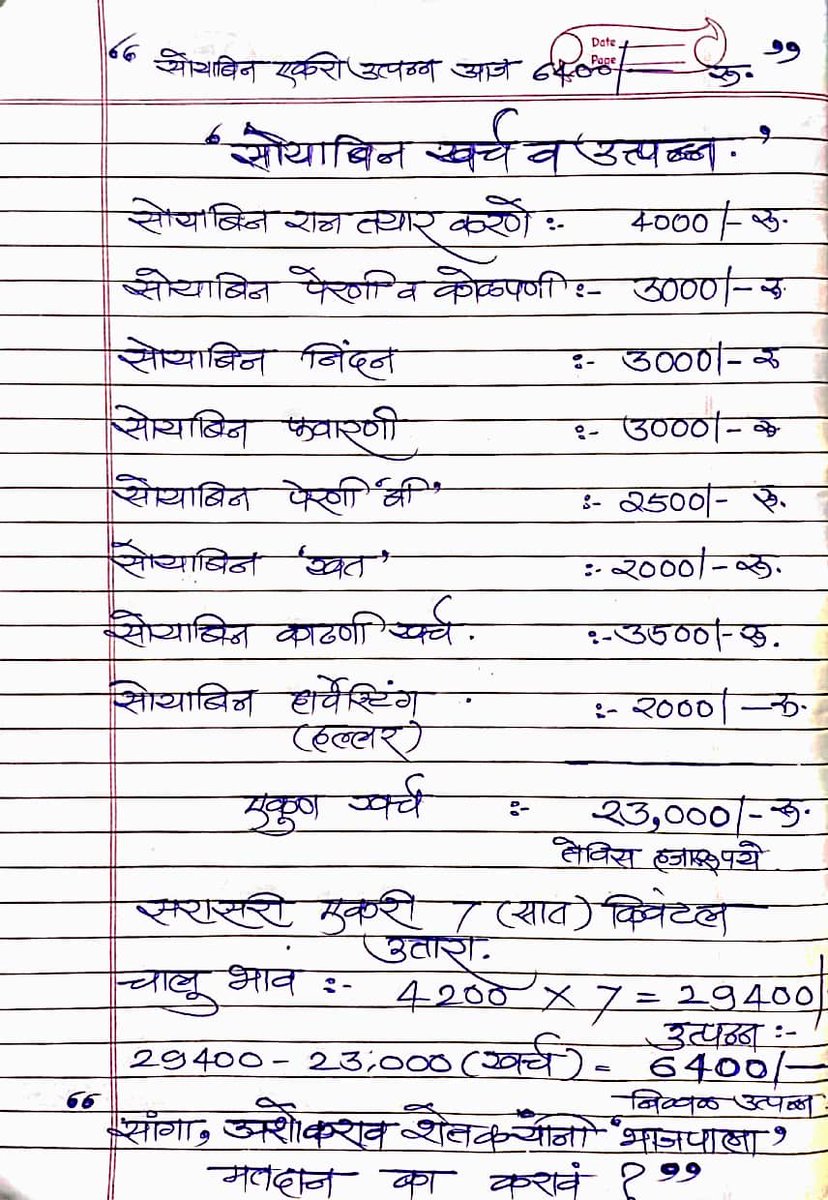 “ सोयाबिन एकरी उत्पन्न आज 6400/— रू. ”
Date
Page
‘ सोयाबिन खर्च व उत्पन्न. ’
सोयाबिन रान तयार करणे :- 4000/- रू.
सोयाबिन पेरणी व कोळपणी :- 3000/- रू
सोयाबिन निंदन :- 3000/- रू
सोयाबिन फवारणी :- 3000/- रू
सोयाबिन पेरणी ‘बी’ :- 2500/- रू.
सोयाबिन ‘खत’ :- 2000/- रू.
सोयाबिन काढणी खर्च . :- 3500/- रू.
सोयाबिन हार्वेस्टिंग . :- 2000/— रू.
(हल्लर)
एकुण खर्च :- 23,000/- रू.
तेविस हजार रूपये
सरासरी एकरी 7 (सात) क्विंटल
उतारा.
चालू भाव :- 4200 X 7 = 29400/
उत्पन्न :-
29400 - 23,000 (खर्च) = 6400/—
निव्वळ उत्पन्न
“ सांगा, अशोकराव शेतकऱ्यांनी ‘भाजपाला’
मतदान का करावं ? ”